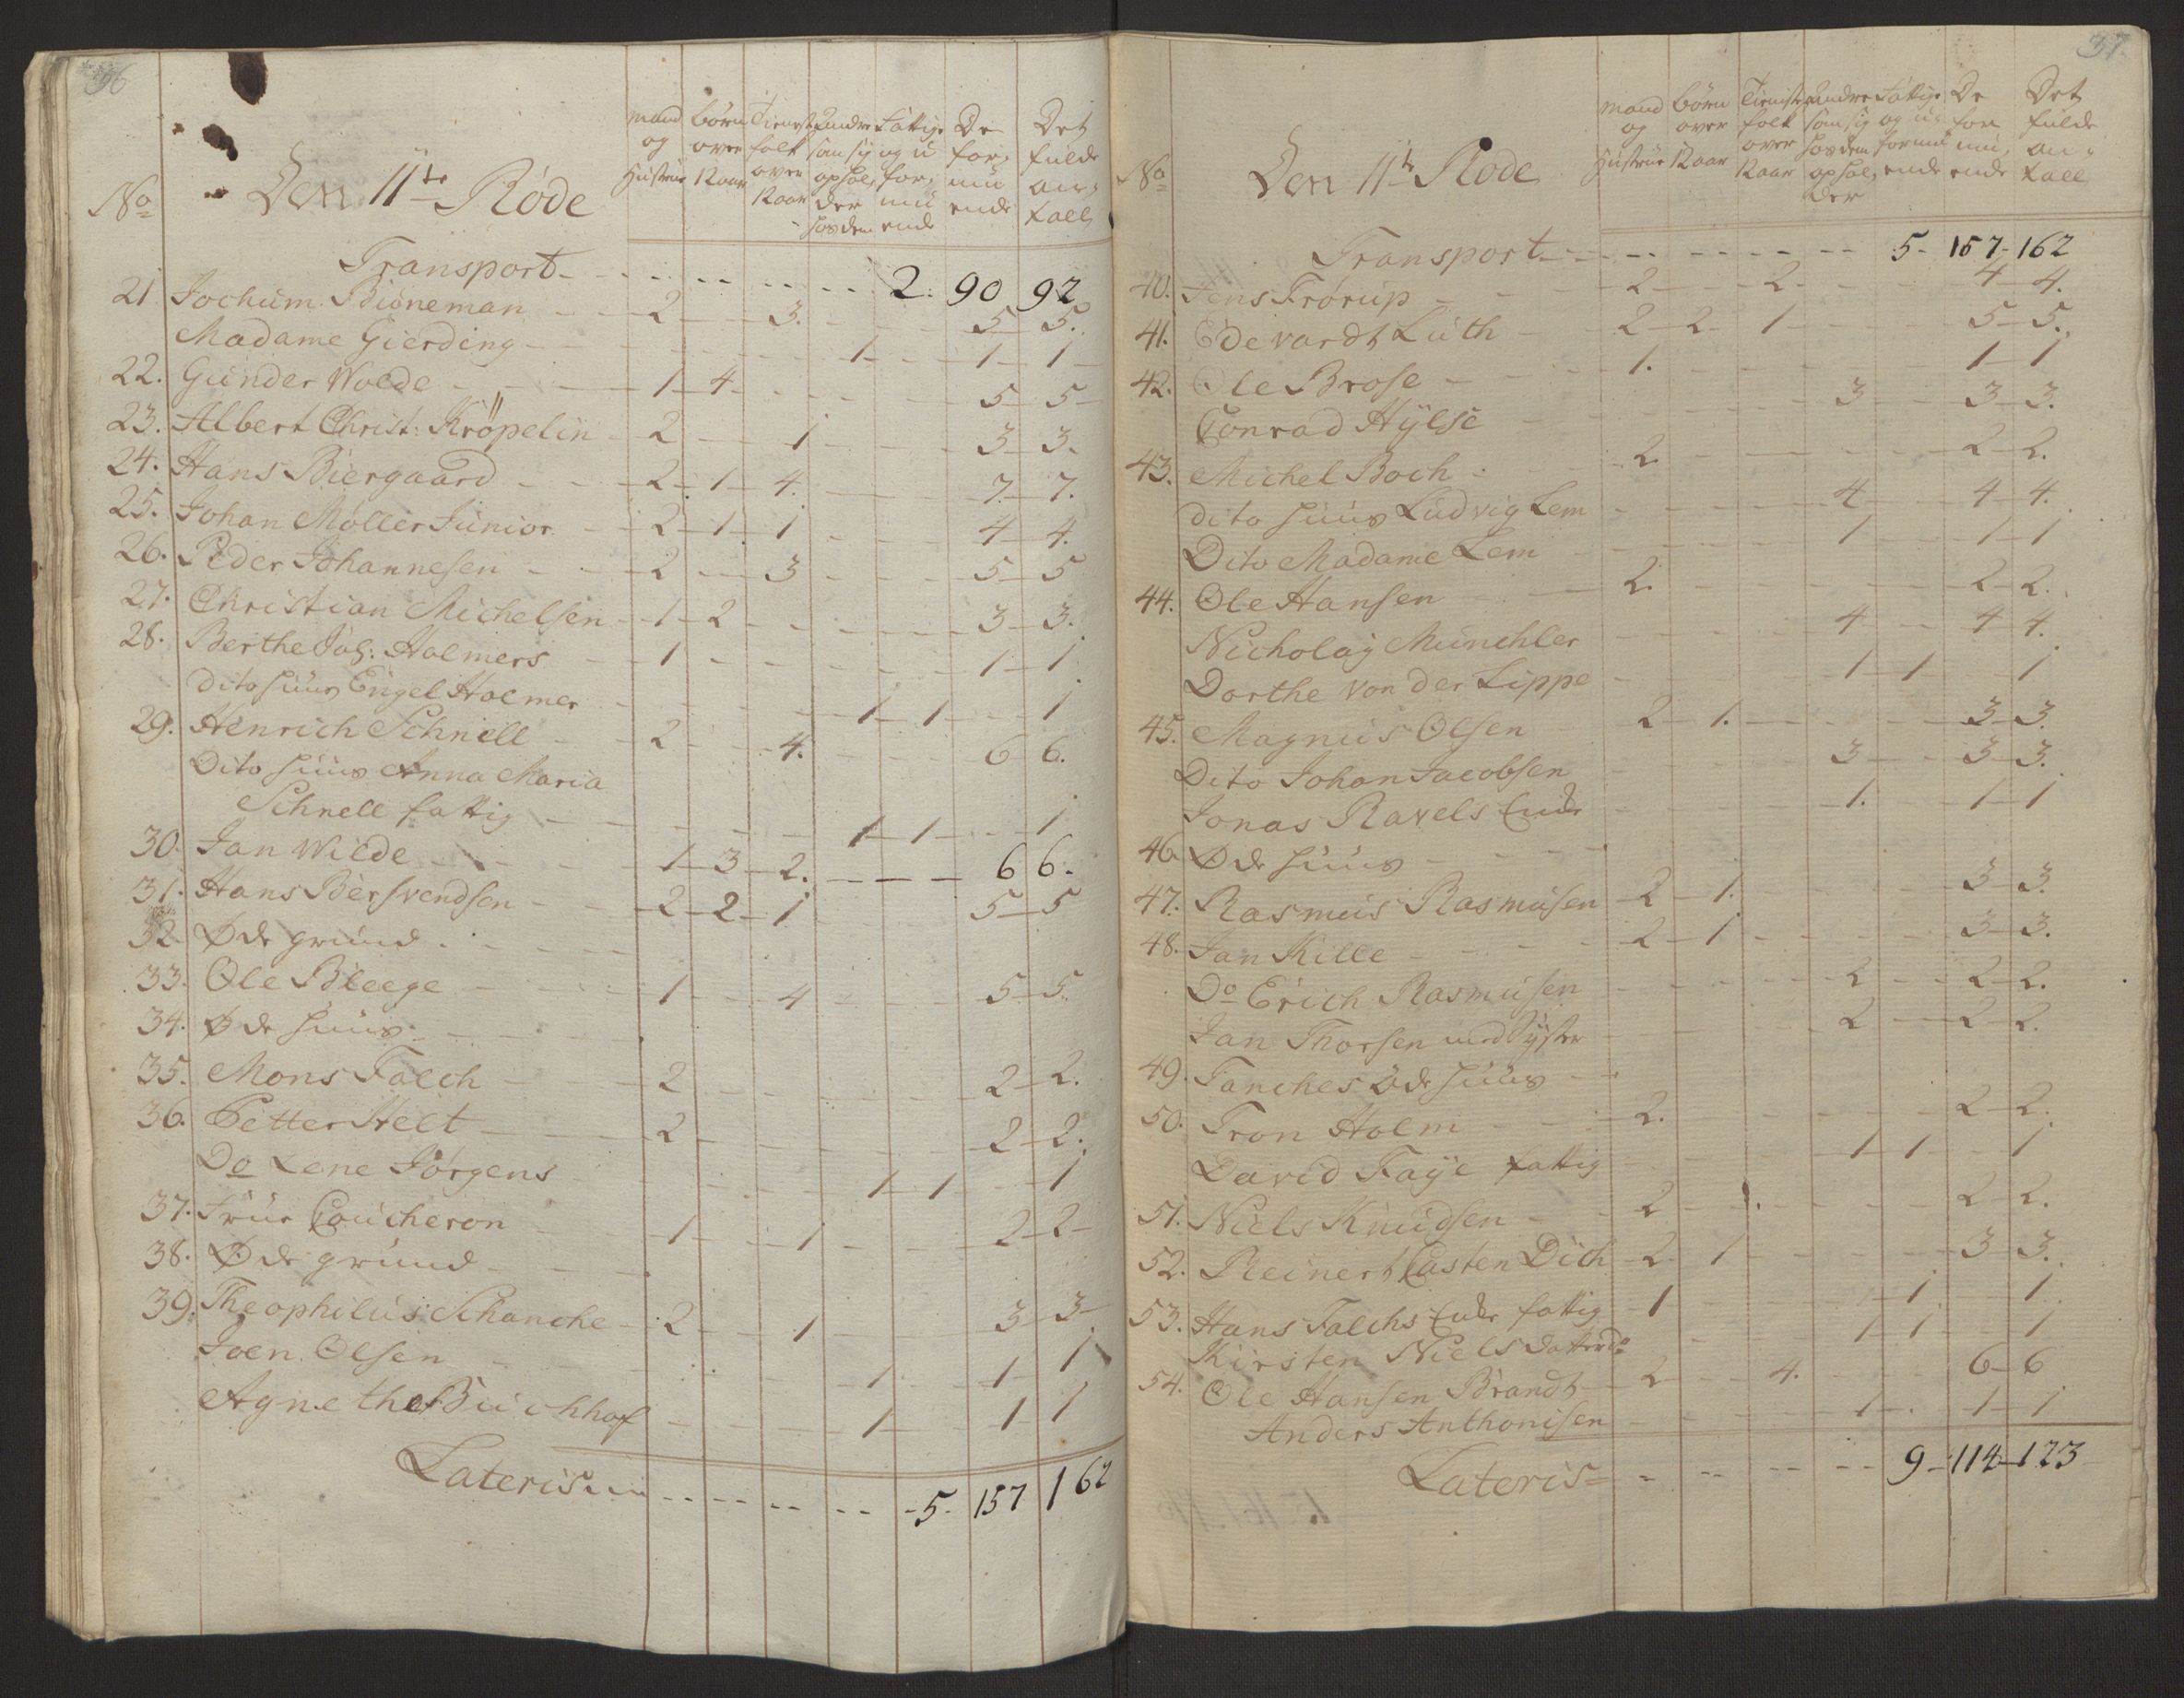 36
No
Den 11te Rode
mand og Hustrue
börn over 12 aar
Tieneste folk over 12 aar
andre som sig opholder hos dem
Fattige og u formuende
De formuende
Det fulde antall
Transport - - 2. 90 92
21 Jochum Bióneman 2 3. 5 5.
Madame Gierding 1 1 1
22. Günder Wolde 1 4 5 5
23. Albert Christ: Kröpelin 2 1 3 3.
24. Hans Biergaard 2 1 4. 7. 7.
25. Johan Möller Junior 2 1 1 4 4.
26. Peder Johannesen 2 3 5 5
27. Christian Michelsen 1 2 3 3.
28. Berthe Joh: Holmers 1 1 1
Dito huus Engel Holmer 1 1 1
29. Henrich Schnell 2 4. 6 6.
Dito huus Anna Maria
Schnell fattig 1 1 1
30. Jan Wilde 1 3 2. 6 6.
31. Hans Bersvendsen 2 2 1 5 5
32 Øde grund
33. Ole Bleege 1 4 5 5.
34. Øde huus
35. Mons Falch 2 2 2.
36. Petter Helt 2 2 2.
Do Lene Jörgens 1 1 1
37. Frue Coucheron 1 1 2 2
38. Øde grund
39. Theophilus Schanche 2 1 3 3
Joen Olsen 1 1 1
Agnethe Buchhof 1 1 1
Lateris 5. 157 162
37
No
Den 11te Rode
mand og Hustrue
börn over 12 aar
Tieniste folk over 12 aar
andre som sig hos dem opholder
Fattige og u formuende
De formuende
Det fulde antall
Transport 5 157 162
40. Jens Frörup 2 2. 4 4.
41. Edevardt Luth 2 2 1 5 5.
42. Ole Brose 1. 1 1
Conrad Hylse 3 3 3.
43. Michel Boch 2 2 2.
dito huus Ludvig Lem 4 4 4.
Dito Madame Lem 1 1 1
44. Ole Hansen 2. 2 2.
Nicholaj Münchler 4 4 4.
Dorthe von der Lippe 1 1 1
45. Magnus Olsen 2 1. 3 3.
Dito Johan Jacobsen 3 3 3.
Jonas Ravels Enke 1. 1 1
46 Øde huus
47. Rasmus Rasmusen 2 1. 3 3.
48. Jan Kille 2 1 3 3.
Do Erich Rasmusen 2 2 2.
Jan Thorsen med Syster 2 2 2.
49. Fanches öde huus
50. Tron Holm 2. 2 2.
David Faye fattig 1 1 1
51. Niels Knudsen 2 2 2.
52. Reinert Casten Dich 2 1 3 3.
53. Hans Falchs Enke fattig 1 1 1
Kirsten Niels datter do 1 1 1
54. Ole Hansen Brandt 2 4. 6 6
Anders Anthonisen 1 1 1
Lateris 9 114 123